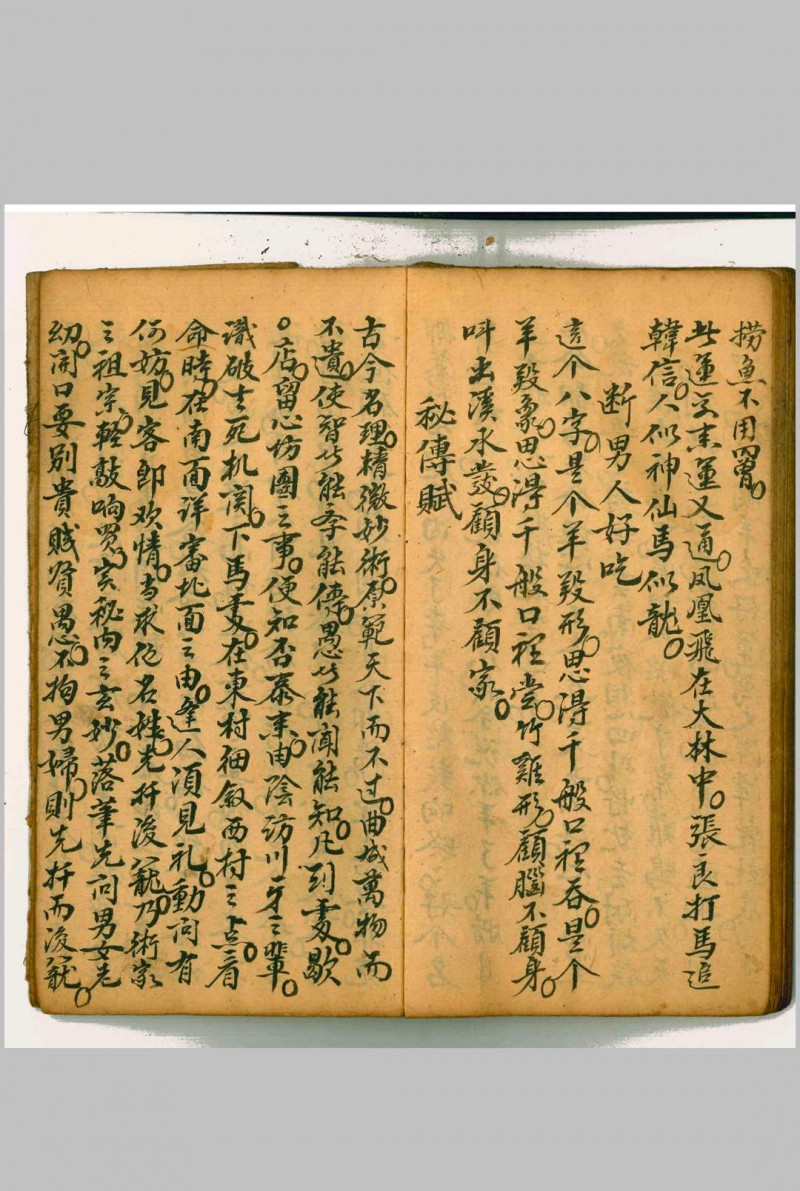 捞魚不用罾。
此運交來運又通。凤凰飛在大林中。張良打馬追
韓信。人似神仙馬似龍。
断男人好吃
這个八字。是个羊羖形。思淂千般口裡吞。是个
羊羖象。思淂千般口裡嘗。竹雞形。顧腦不顧身。
叫出溪水發。顧身不顧家。
秘傳賦
古今名理。精微妙術。原範天下而不过。曲城萬物而
不遺。使智以能孝能傳。愚以能聞能知。凡到䖏。歇
。店。留心坊圕三事。便知否泰来由。陰訪川牙三輩。
識破生死机関。下馬䖏。在東村細叙西村三点。看
命時。在南面详審北面三由。逢人湏見礼。動问有
何妨。見客即欢情。当求他名姓。先扦後䉶。乃術家
三祖宗。軽敲响買。实秘内三玄妙。落筆先问男女老
幼。開口要别貴賎贫愚。不拘男婦。則先扦而後䉶。